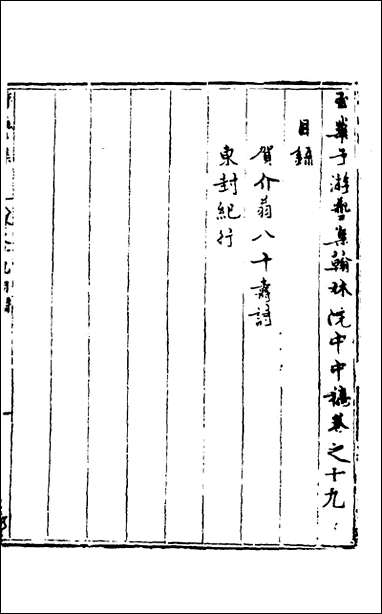 玉華子游藝集翰林院中中稿卷之十九
目錄
賀介翁八十壽詞
東封紀行